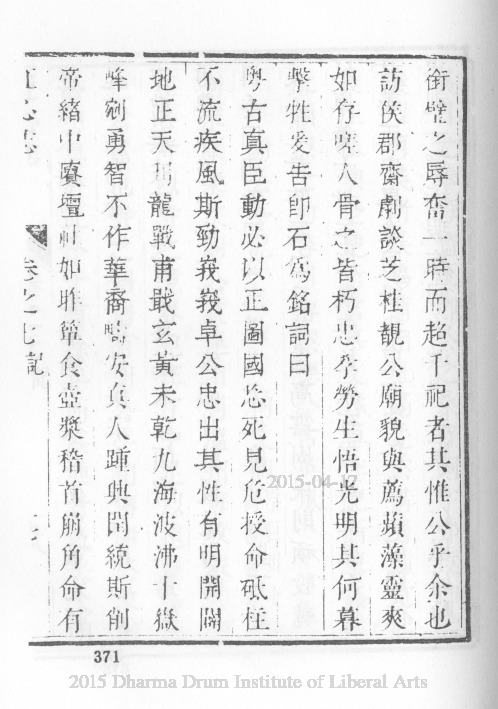 銜璧之辱奮一時而超千祀者其惟公乎余也
訪侯郡齋劇談芝桂覩公廟貌與薦蘋藻靈爽
如存嗟人骨之皆朽忠孝勞生悟光明其何暮
擊牲爰告卽石爲銘詞曰
粵古真臣動必以正圖國恐死見危授命砥柱
不流疾風斯勁峩峩卓公忠出其性有明開闢
地正天 龍戰甫戢玄黃未乾九海波沸十嶽
峰剜勇智不作華裔疇安真人踵興閏統斯削
帝緒中賡壇社如昨簞食壺漿稽首崩角命有
江心志 卷之七記
371
2015-04-17
2015 Dharma Drum Institute of Liberal Arts